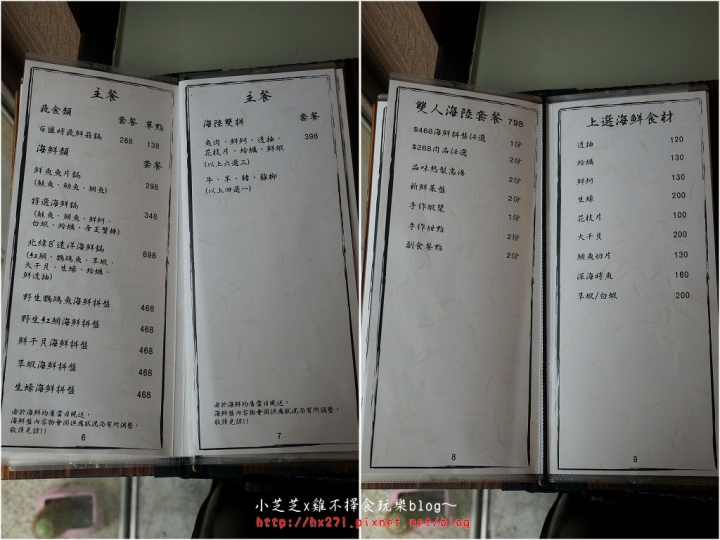 主餐
蔬食類 套餐 單點
百匯時蔬鮮菇鍋 268 138
海鮮類 套餐
鮮魚魚片鍋 298
(鮭魚、魴魚、鯛魚)
特選海鮮鍋 348
(鮭魚、鯛魚、鮮蚵、
白蝦、蛤蠣、帝王蟹棒)
北緯8°遠洋海鮮鍋 698
(紅鯛、鸚鵡魚、草蝦、
大干貝、生蠔、蛤蠣、
鮮透抽)
野生鸚鵡魚海鮮拼盤 468
野生紅鯛海鮮拼盤 468
鮮干貝海鮮拼盤 468
草蝦海鮮拼盤 468
生蠔海鮮拼盤 468
由於海鮮均屬當日現送,
海鮮盤內容物會因供應狀況而有所調整,
敬請見諒!!
6
主餐
海陸雙拼 套餐
魚肉、鮮蚵、透抽、 398
花枝片、蛤蠣、鮮蝦
(以上六選三)
牛、羊、豬、雞柳
(以上四選一)
由於海鮮均屬當日現送,
海鮮盤內容物會因供應狀況而有所調整,
敬請見諒!!
7
雙人海陸套餐 798
$468海鮮拼盤任選 1份
$268肉品任選 2份
品味熬製高湯 2份
新鮮菜盤 2份
手作蝦漿 1份
手作甜點 2份
副食餐點 2份
8
上選海鮮食材
透抽 120
蛤蠣 130
鮮蚵 130
生蠔 200
花枝片 100
大干貝 200
鯛魚切片 130
深海時魚 160
草蝦/白蝦 200
9
小芝芝x雞不擇食玩樂blog~
http://hx271.pixnet.net/blog